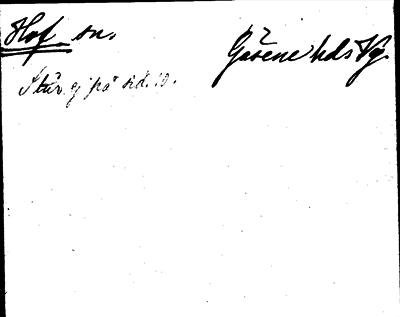 Hof sn.
Gäsene hds Vg.
Står ej på sid. 10.